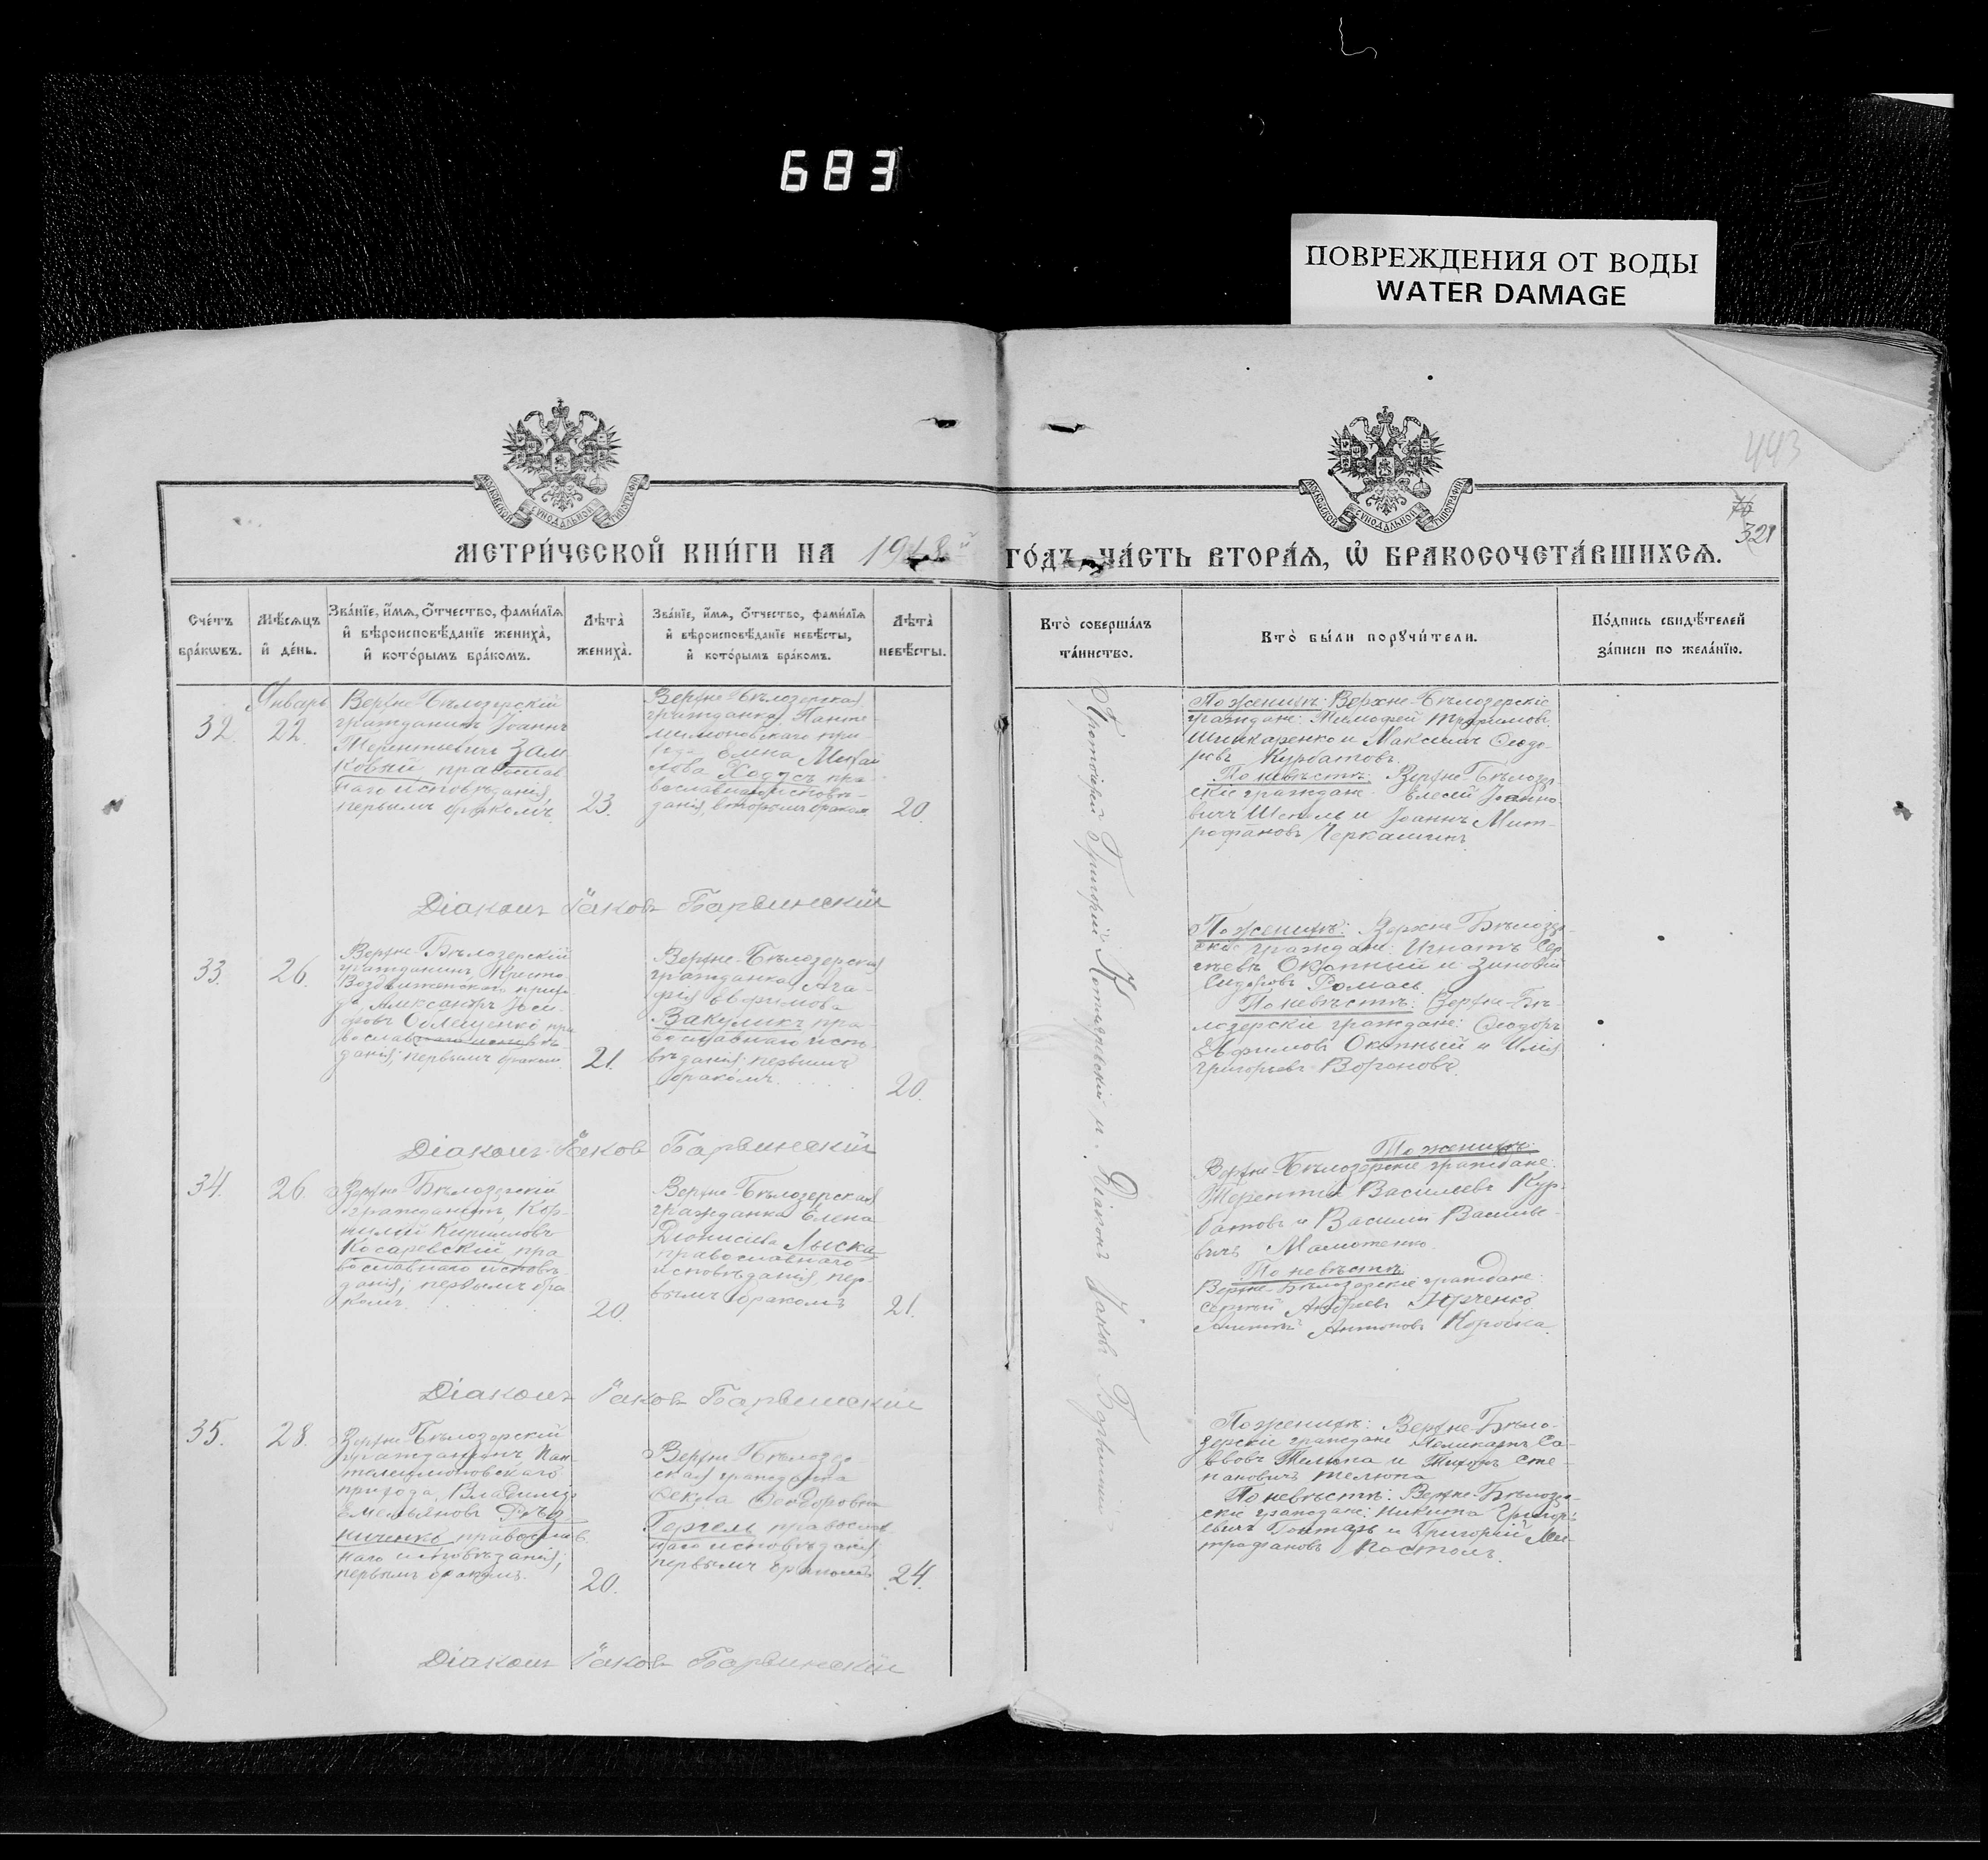 683
ПОВРЕЖДЕНИЯ ОТ ВОДЫ
WATER DAMAGE
443
76
321
МОСКОВСКОЙ СѴНОДАЛЬНОЙ ТИПОГРАФІИ
МОСКОВСКОЙ СѴНОДАЛЬНОЙ ТИПОГРАФІИ
МЕТРИ́ЧЕСКОЙ КНИ́ГИ НА 1918й ГО́ДЪ, ЧА́СТЬ ВТОРА́Я, Ѡ БРАКОСОЧЕТА́ВШИХСЯ.
Сче́тъ бра́кѡвъ.
Мѣ́сяцъ и҆ де́нь.
Зва́нїе, и҆́мя, ѻ҆́тчество, фамилїя
и҆ вѣроисповѣ́данїе жениха̀,
и҆ кото́рымъ бра́комъ.
Лѣта̀ жениха̀.
Зва́нїе, и҆́мя, ѻ҆́тчество, фамилїя
и҆ вѣроисповѣ́данїе невѣ́сты,
и҆ кото́рымъ бра́комъ.
Лѣта̀ невѣ́сты.
Кто̀ соверша́лъ та́инство.
Кто̀ бы́ли порꙋчи́тели.
По́дпись свидѣ́телей за́писи по жела́нїю.
32.
Январь
22.
Верхне-Бѣлозерскій
гражданинъ Іоаннъ
Терентьевичъ Зам
ковый православ
наго исповѣданія,
первымъ бракомъ.
23.
Верхне-Бѣлозерская
гражданка, Панте-
леимоновскаго при-
хода Елена Михаи
лова Ходусъ пра-
вославнаго исповѣ-
данія, вторымъ бракомъ
20.
По женихѣ: Верхне-Бѣлозерскіе
граждане: Тимофей Трофимовъ
Шинкаренко и Максимъ Ѳеодо-
ровъ Курбатовъ.
По невѣстѣ: Верхне-Бѣлозер
скіе граждане: Елесей Іоанно
вичъ Шепель и Іоаннъ Мит-
рофановъ Черкашинъ
Діаконъ Іаковъ Барвинскій
33.
26.
Верхне-Бѣлозерскій
гражданинъ, Кресто
Воздвиженскаго прихо
да Александръ Іоси
фовъ Облещенко пра
вославнаго исповѣ-
данія; первымъ бракомъ
21.
Верхне-Бѣлозерская
гражданка Ага-
фія Евфимова
Вакуликъ пра-
вославнаго испо-
вѣданія; первымъ
бракомъ.
20.
По женихѣ: Верхне-Бѣлозер-
скіе граждане: Игнатъ Сер
гѣевъ Окопный и Зиновій
Сидоровъ Ромасъ
По невѣстѣ: Верхне-Бѣ-
лозерскіе граждане: Ѳеодоръ
Евфимовъ Окопный и Илія
Григорьевъ Вороновъ.
Діаконъ Іаковъ Барвинскій
34.
26.
Верхне-Бѣлозерскій
гражданинъ, Кор-
нилій Кирилловъ
Косаревскій, пра
вославнаго исповѣ-
данія; первымъ бра
комъ.
20.
Верхне-Бѣлозерская
гражданка Елена
Діонисіева Лыска
православнаго
исповѣданія, пер-
вымъ бракомъ
21.
По женихѣ:
Верхне-Бѣлозерскіе граждане:
Терентій Василіевъ Кур-
батовъ и Василій Василіе-
вичъ Мамотенко.
По невѣстѣ:
Верхне-Бѣлозерскіе граждане:
Сергѣй Андреевъ Юрченко
Антоновъ
Діаконъ Іаковъ Барвинскій
35.
28.
Верхне-Бѣлозерскій
гражданинъ Пан-
телеимоновскаго
прихода, Владиміръ
Емельяновъ Рѣз
ниченко православ
наго исповѣданія;
первымъ бракомъ.
20.
Верхне-Бѣлозер-
ская гражданка
Ѳекла Ѳеодоровна
Гергель православ
наго исповѣданія;
первымъ бракомъ
24.
По женихѣ: Верхне-Бѣло-
зерскіе граждане Поликарпъ Са-
ввовъ Телюпа и Тихонъ Сте-
пановичъ Телюпа
По невѣстѣ: Верхне-Бѣлозер-
скіе граждане: Никита Григорь
евичъ Гонтарь и Григорій Ми-
трофановъ Костюль.
Діаконъ Іаковъ Барвинскій
Протоіерей Григорій и Діаконъ Іаковъ Барвинскій